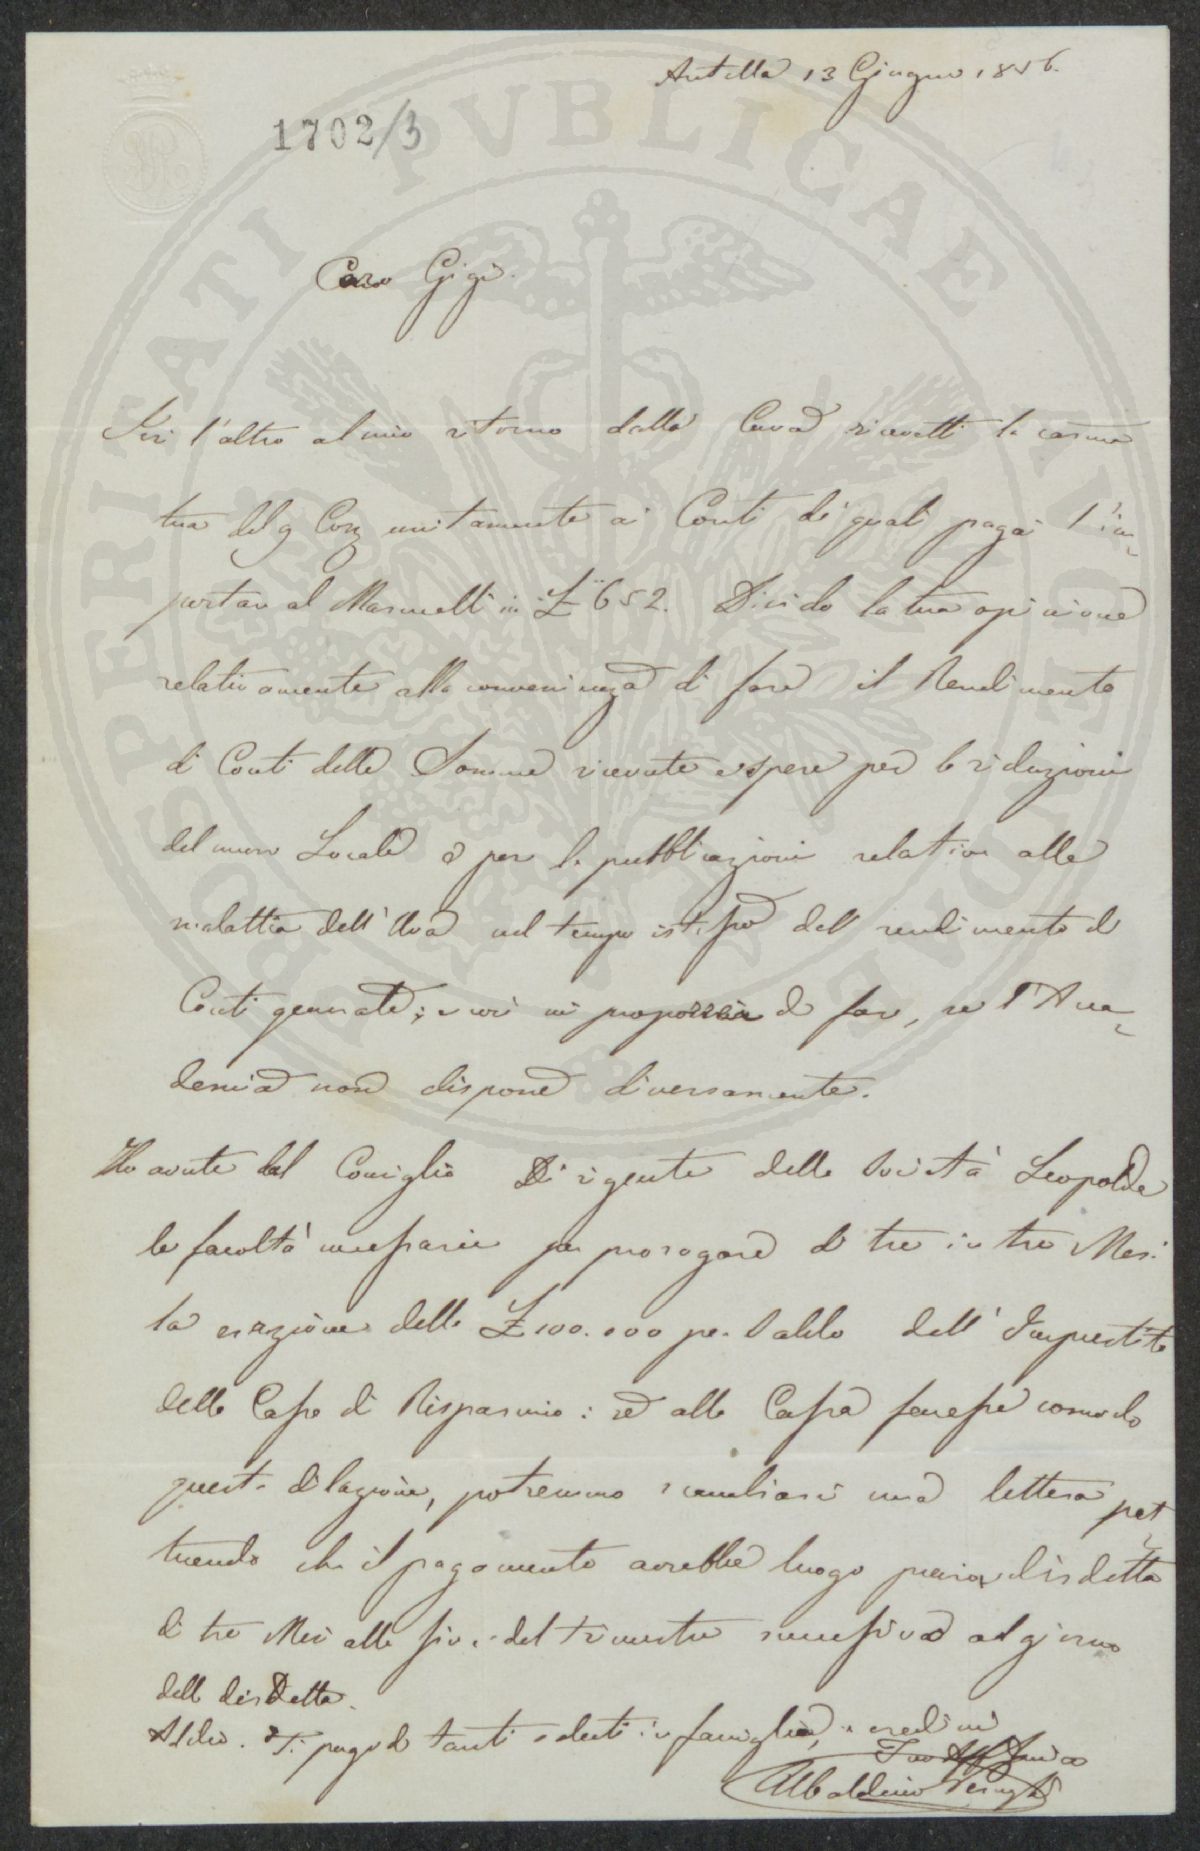 Antella 13 Giugno 1856.
1702/3
PROSPERITATI PUBLICAE AUGENDAE
Caro Gigi.
Ieri l'altro al mio ritorno dalla Cava ricevetti la carma
tua del 9 Corr unitamente ai Conti di quali pagai l'im-
portare al Marinelli in £ 652. Divido la tua opinione
relativamente alla convenienza di fare il Rendimento
di Conti delle Somme ricevute e spese per le riduzioni
del nuovo Locale e per le pubblicazioni relative alla
malattia dell'Uva nel tempo istesso del rendimento di
Conti generale; e così mi proponeva di fare, se l'Acca-
demia non dispone diversamente.
Ho avute dal Consiglio Dirigente della Società Leopolda
le facoltà necessarie per prorogare di tre in tre Mesi
la esazione delle £ 100.000 per Saldo dell'Imprestito
della Cassa di Risparmio: se alla Cassa facesse comodo
questa dilazione, potremmo scambiarci una lettera pat-
tuendo che il pagamento avrebbe luogo previa disdetta
di tre Mesi alla fine del trimestre successivo al giorno
della disdetta.
Addio. Ti prego di tanti saluti in famiglia, e credimi
Tuo Aff Amico
Ubaldino Peruzzi